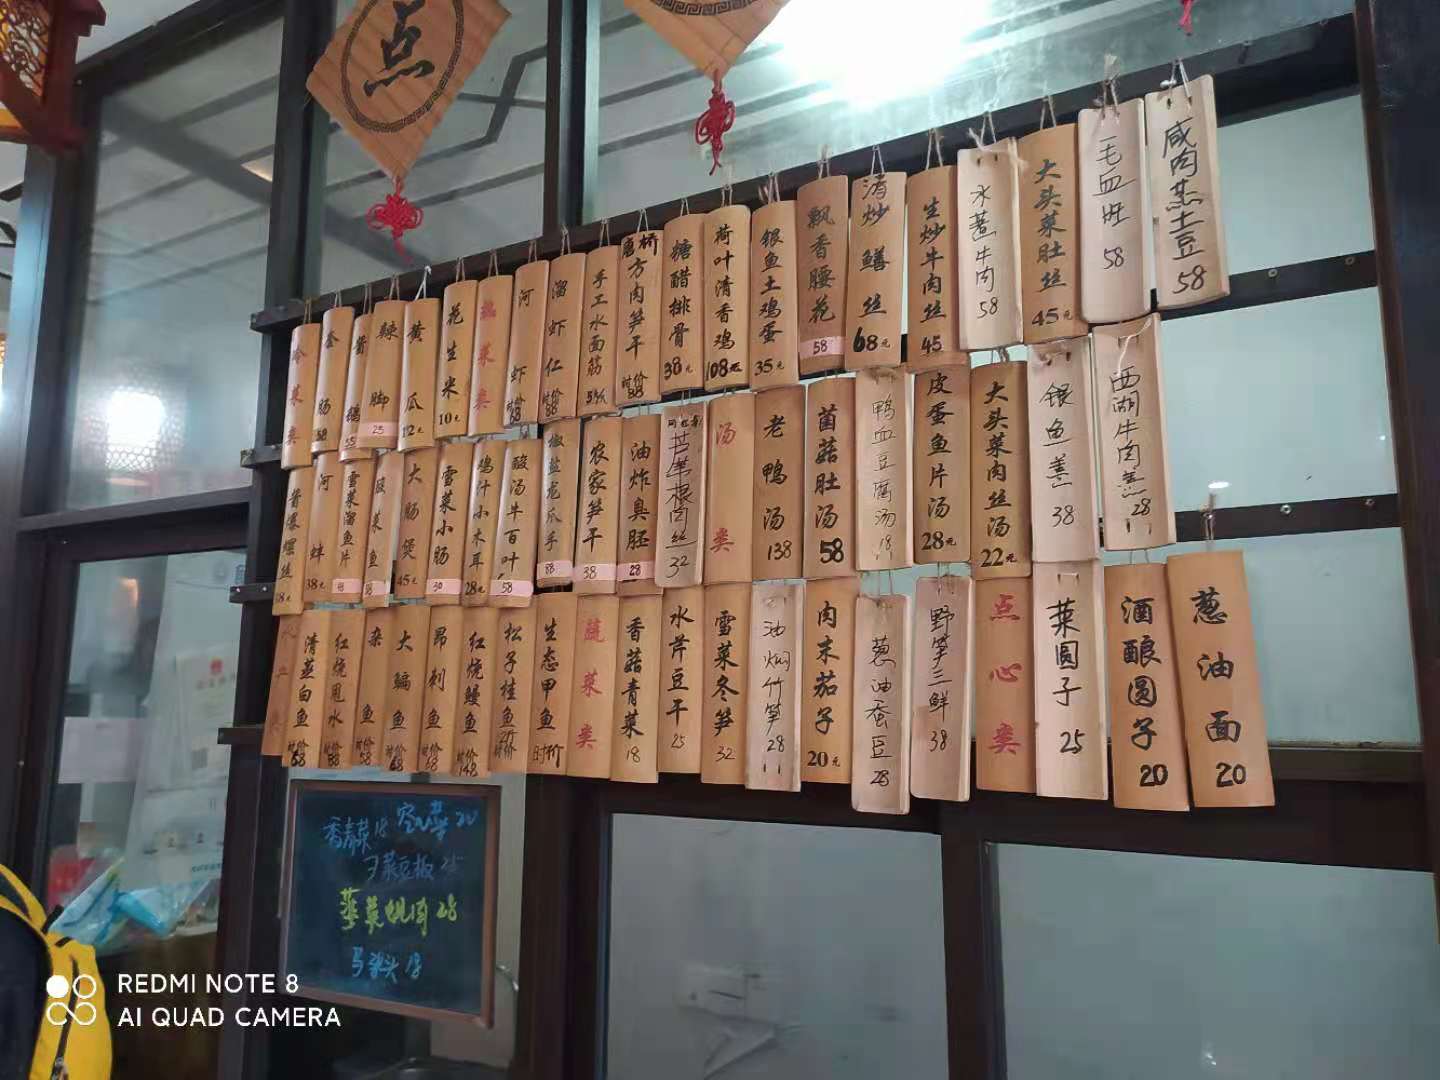 点
冷菜类
香肠 58
酱鸭 55
辣脚 25
黄瓜 12元
花生米 10元
热菜类
河虾 时价 68
溜虾仁 时价 88
手工水面筋
唐桥方肉笋干 时价 88
糖醋排骨 38元
荷叶清香鸡 108元
银鱼土鸡蛋 35元
飘香腰花 58
清炒鳝丝 68元
生炒牛肉丝 45
水煮牛肉 58
大头菜肚丝 45元
毛血旺 58
咸肉蒸土豆 58
酱爆螺丝
河蚌 38元
雪菜溜鱼片
菜鱼
大肠煲 45元
雪菜小肠 30
鸡汁小木耳 28元
酸汤牛百叶 58
椒盐龙爪手 88
农家笋干 38
油炸臭胚 28
肉丝 32
汤类
老鸭汤 138
菌菇肚汤 58
鸭血豆腐汤 18
皮蛋鱼片汤 28元
大头菜肉丝汤 22元
银鱼羹 38
西湖牛肉羹 28
清蒸白鱼 时价 68
红烧甩水 时价 88
杂鱼 时价 58
大鳊鱼 时价 68
昂刺鱼 时价 68
红烧鳗鱼 时价 148
松子桂鱼 时价
生态甲鱼 时价
蔬菜类
香菇青菜 18
水芹豆干 25
雪菜冬笋 32
油焖竹笋 28
肉末茄子 20元
葱油蚕豆 28
野笋三鲜 38
点心类
菜圆子 25
酒酿圆子 20
葱油面 20
香青菜 18
25
28
马兰头 18
REDMI NOTE 8
AI QUAD CAMERA